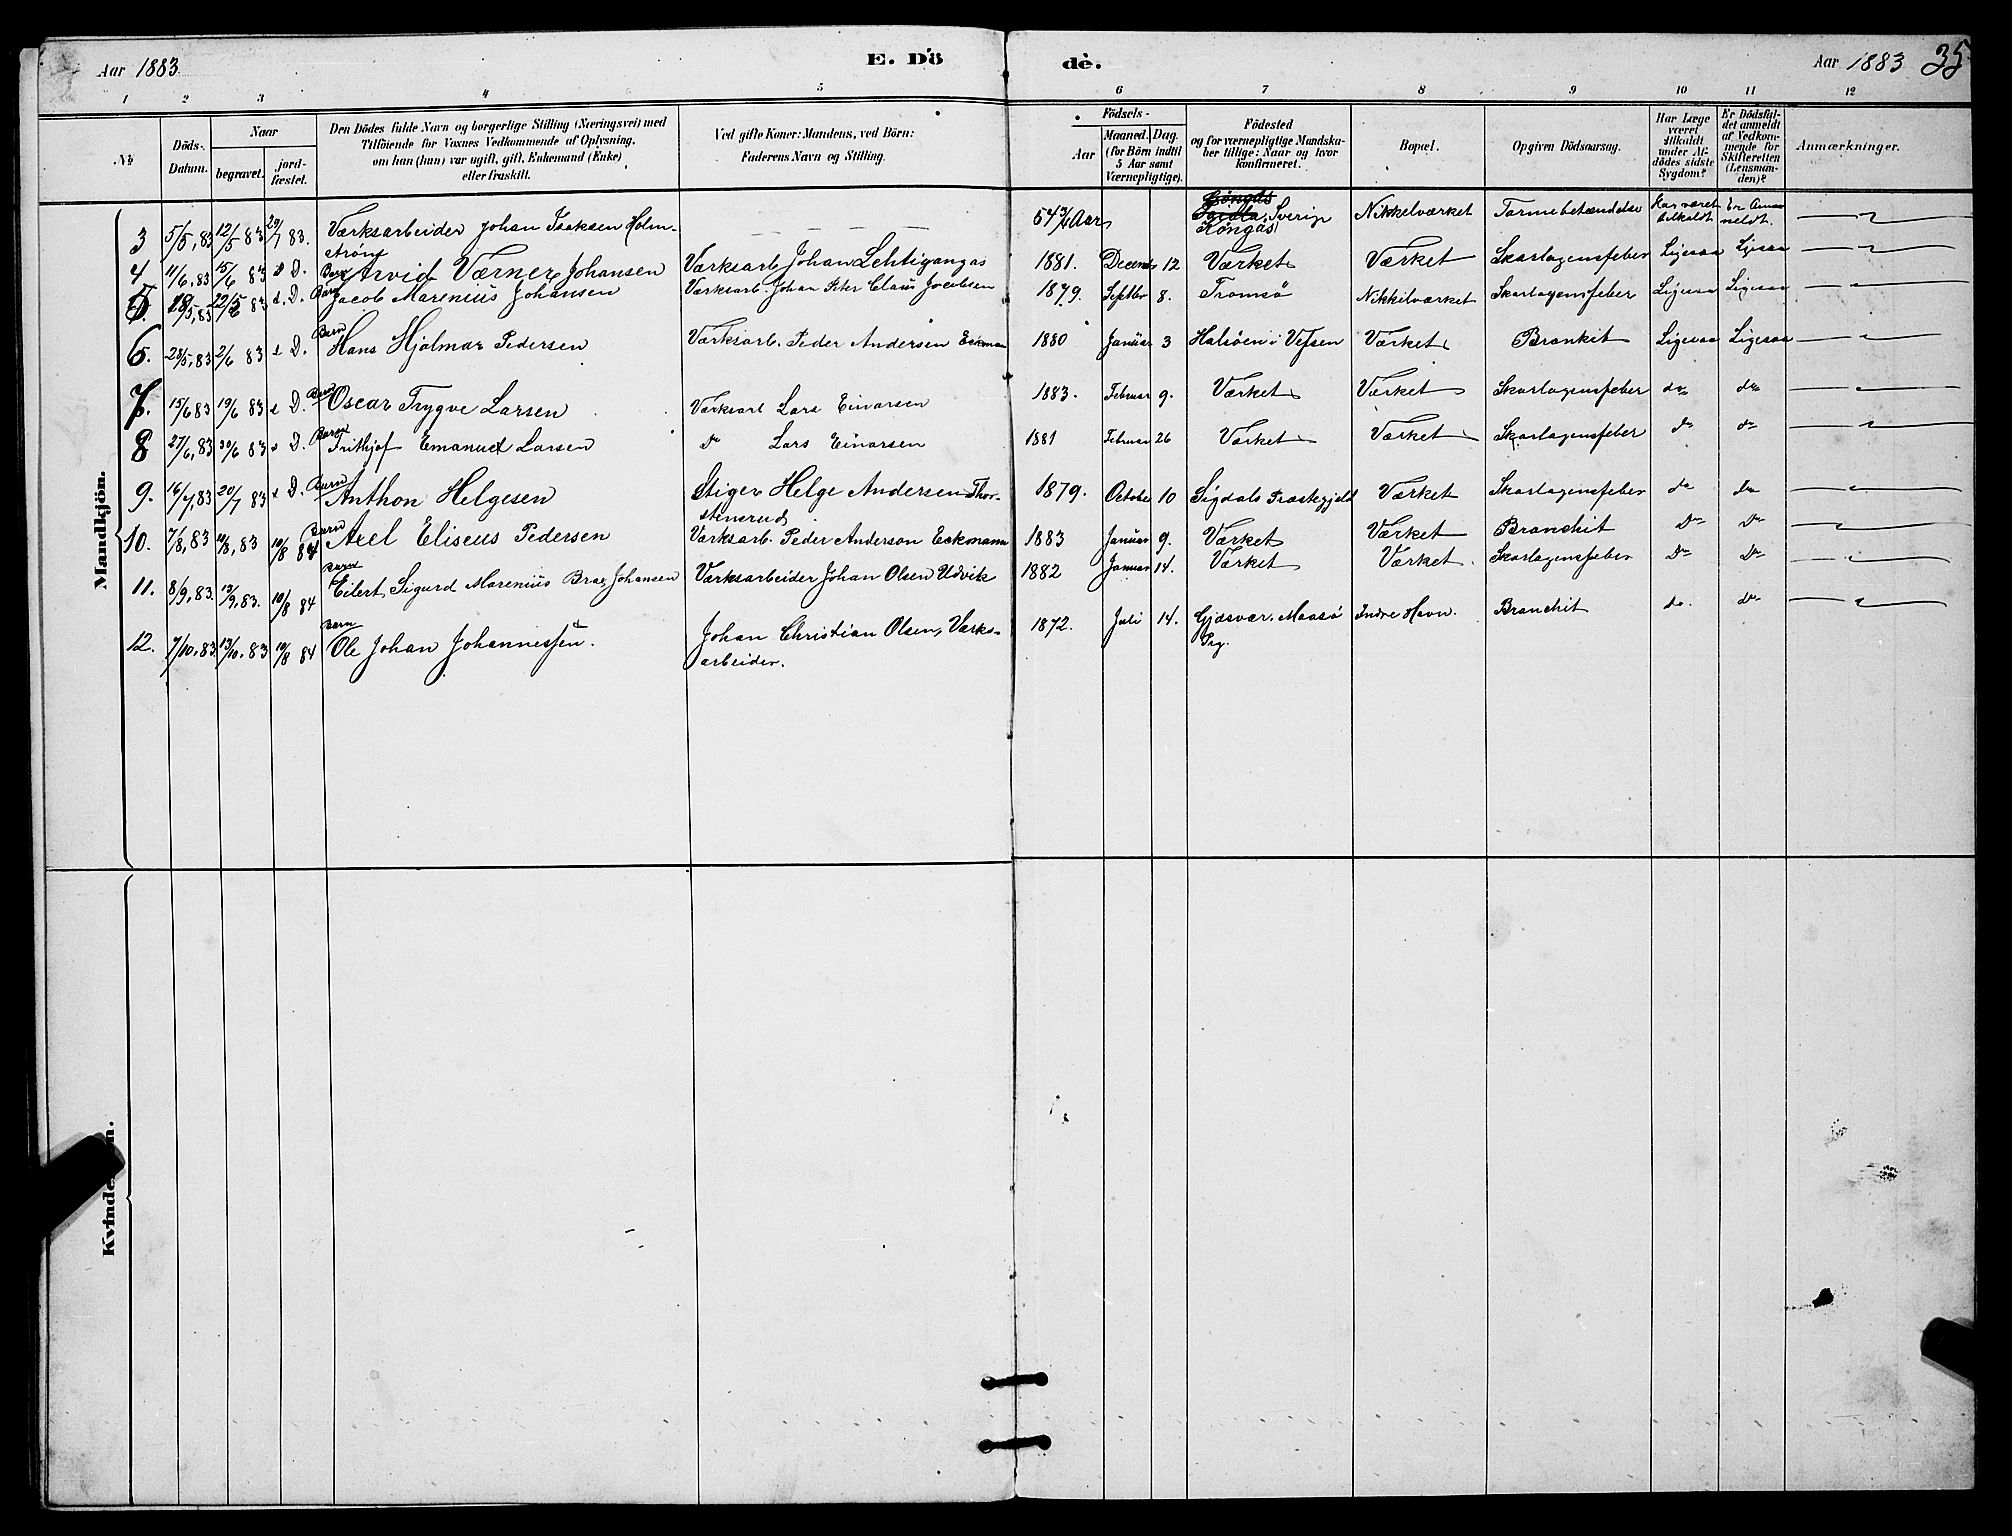 Aar 1883
E. Dö
dè.
Aar 1883 35
1 2 3 4 5 6 7 8 9 10 11 12
No
Döds-
Datum.
Naar
begravet.
jord-
fæstet.
Den Dödes fulde Navn og borgerlige Stilling (Næringsvei) med
Tilföiende for Voxnes Vedkommende af Oplysning,
om han (hun) var ugift, gift, Enkemand (Enke)
eller fraskilt.
Ved gifte Koner: Mandens, ved Börn:
Faderens Navn og Stilling.
Födsels-
Aar
Maaned. Dag.
(for Börn indtil
5 Aar samt
Værnepligtige).
Födested
og for værnepligtige Mandska-
ber tillige: Naar og hvor
konfirmeret.
Bopæl.
Opgiven Dödsaarsag.
Har Læge
været
tilkaldt
under Af-
dödes sidste
Sygdom?
Er Dödsfal-
det anmeldt
af Vedkom-
mende for
Skifteretten
(Lensman-
den)?
Anmærkninger.
Mandkjön.
3 5/5,83 12/5 83 29/7 83. Værksarbeider Johan Isaksen Holm- 54 3/4 Aar Sverig Nikkelværket Tarmebetændelse Har været Er Anm
strøm Kongäs tilkaldt meldt.
4 11/6,83 15/6 83 s D. Barn Arvid Værner Johansen Værksarb Johan Lehtigangas 1881. Decemb 12 Værket Værket Skarlagensfeber Ligesaa Ligesaa
5. 18/5,83 22/5 83 s. D. Barn Jacob Marenius Johansen Værksarb. Johan Peter Claus Jacobsen 1879. Septbr 8. Tromsø Nikkilværket Skarlagensfeber Ligesaa Ligesaa
6. 28/5,83 2/6 83 s D. Barn Hans Hjalmar Pedersen Værksarb. Peder Andersen Eckman 1880 Januar 3 Halsöen i Vefsen Værket Bronkit Ligesaa Ligesaa
7. 15/6 83 19/6 83 s D. Barn Oscar Trygve Larsen Værksarb Lars Einarsen 1883. Februar 9. Værket Værket Skarlagensfeber do do
8 27/6,83 30/6 83 s D. Barn Frithjof Emanuel Larsen do Lars Einarsen 1881 Februar 26 Værket Værket Skarlagensfeber do do
9. 16/7,83 20/7 83 s D. Barn Anthon Helgesen Stiger Helge Andersen Thor- 1879. October 10 Sigdals Præstegjeld Værket Skarlagensfeber do do
stenrud
10. 7/8,83 10/8,83 10/8 84 Barn Axel Eliseus Pedersen Værksarb. Peder Anderson Eckmann 1883 Januar 9. Værket Værket Bronchit Do Do
11. 8/9,83. 13/9,83. 10/8 84 Barn Eilert Sigurd Marenius Brax Johansen Værksarbeider Johan Olsen Udvik 1882 Januar 14. Værket Værket. Skarlagensfeber Do Do
12. 7/10,83. 13/10,83 10/8 84 Barn Ole Johan Johannessen. Johan Christian Olsen, Værks- 1872. Juli 14. Gjæsvær, Maasø Indre Havn. Bronchit do. do
arbeider. Prg.
Kvinde n.